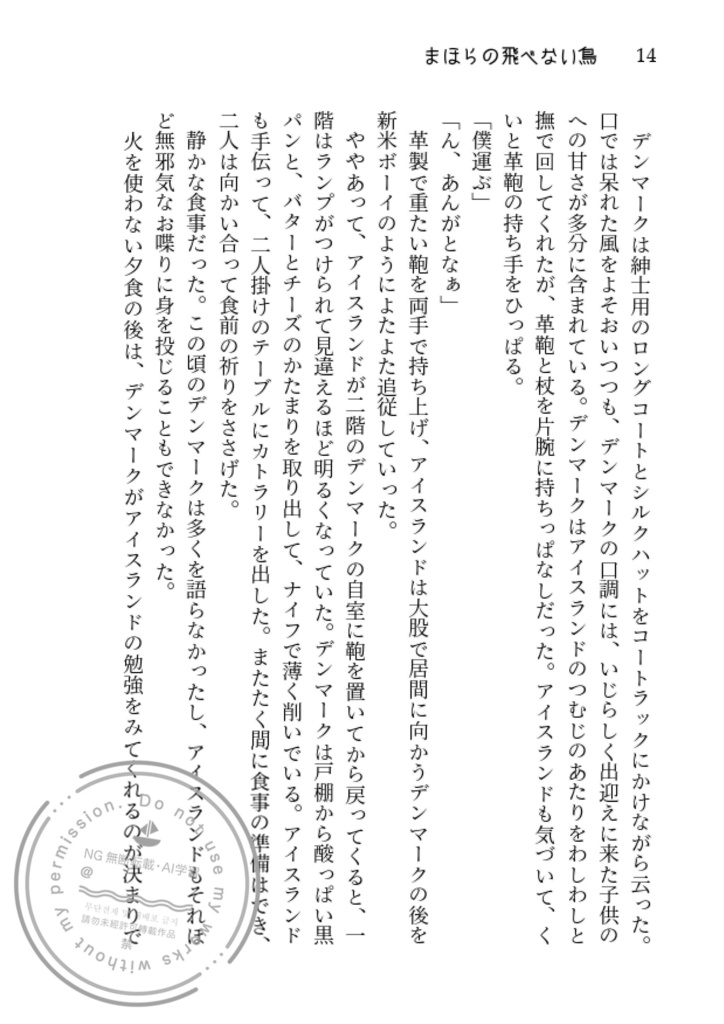 まほらの飛べない鳥
14
デンマークは紳士用のロングコートとシルクハットをコートラックにかけながら云った。
口では呆れた風をよそおいつつも、デンマークの口調には、いじらしく出迎えに来た子供の
への甘さが多分に含まれている。デンマークはアイスランドのつむじのあたりをわしわしと
撫で回してくれたが、革鞄と杖を片腕に持ちっぱなしだった。アイスランドも気づいて、く
いと革鞄の持ち手をひっぱる。
「僕運ぶ」
「ん、あんがとなぁ」
革製で重たい鞄を両手で持ち上げ、アイスランドは大股で居間に向かうデンマークの後を
新米ボーイのようによたよた追従していった。
ややあって、アイスランドが二階のデンマークの自室に鞄を置いてから戻ってくると、一
階はランプがつけられて見違えるほど明るくなっていた。デンマークは戸棚から酸っぱい黒
パンと、バターとチーズのかたまりを取り出して、ナイフで薄く削いでいる。アイスランド
も手伝って、二人掛けのテーブルにカトラリーを出した。またたく間に食事の準備はでき、
二人は向かい合って食前の祈りをささげた。
静かな食事だった。この頃のデンマークは多くを語らなかったし、アイスランドもそれほ
ど無邪気なお喋りに身を投じることもできなかった。
火を使わない夕食の後は、デンマークがアイスランドの勉強をみてくれるのが決まりで
Do not use my works without my permission.
NG 無断転載・AI学習
@
무단전재 및 재배포 금지
請勿未經許可轉載作品
禁